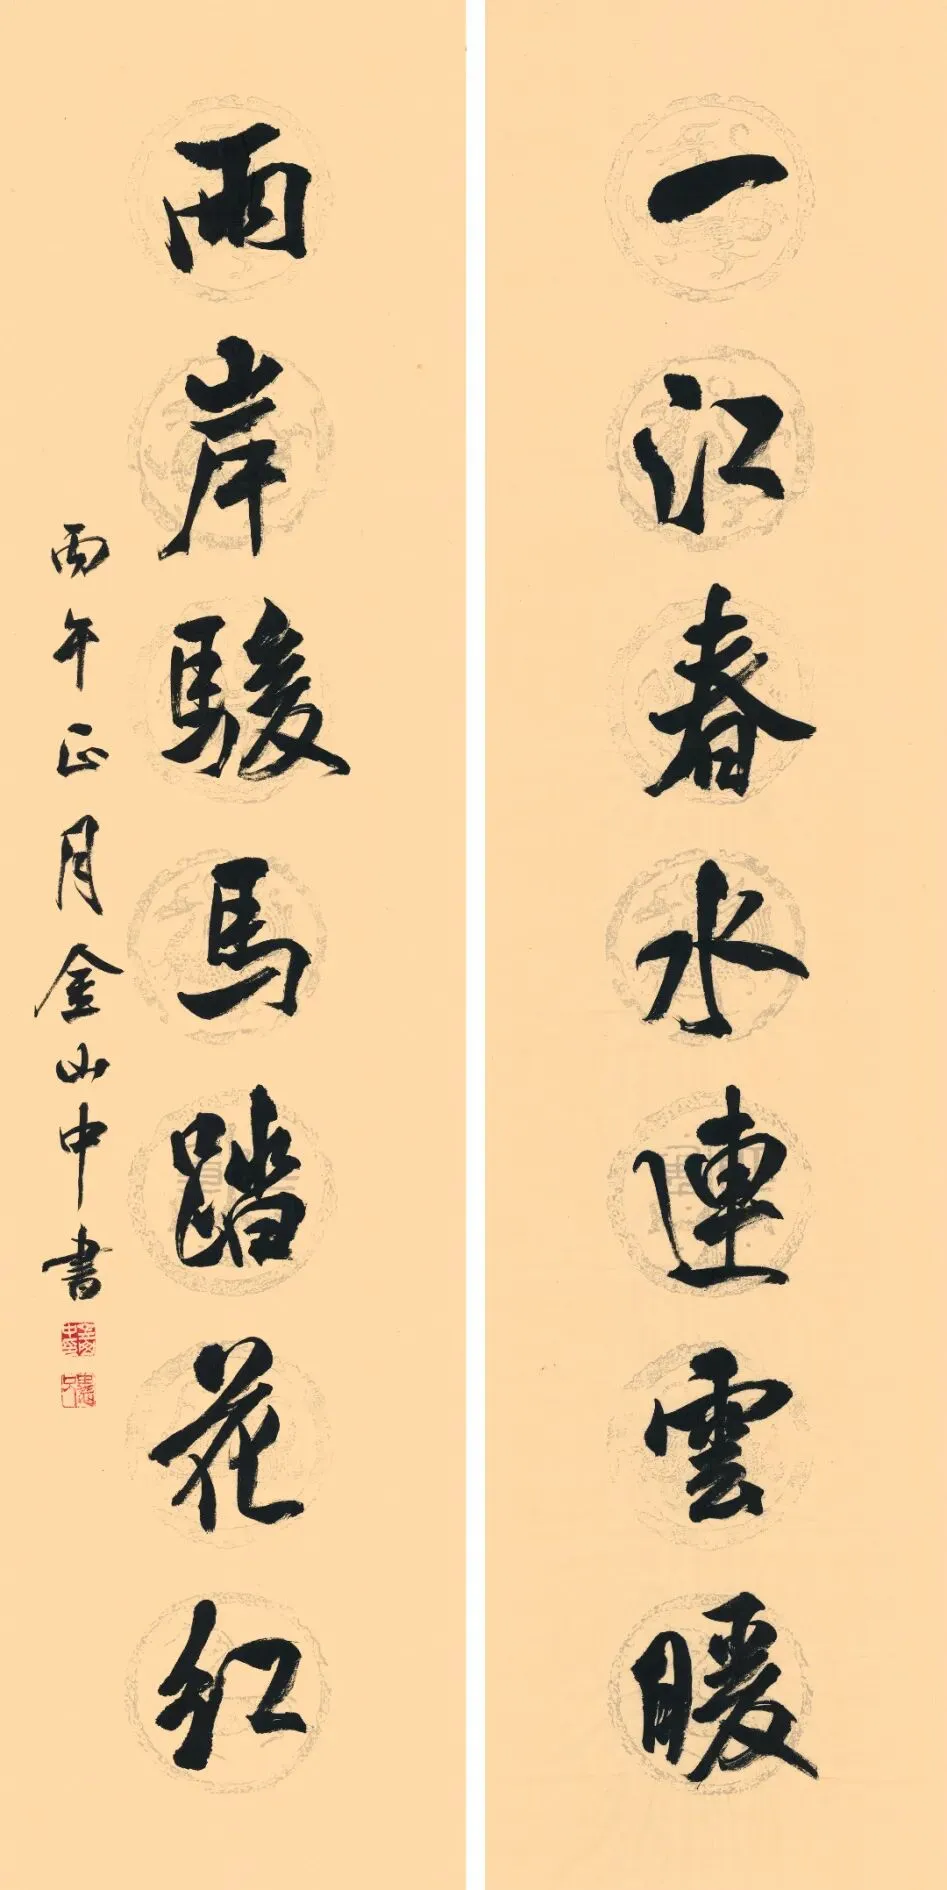 一江春水連雲暖
兩岸駿馬踏花红
丙午正月金山中書